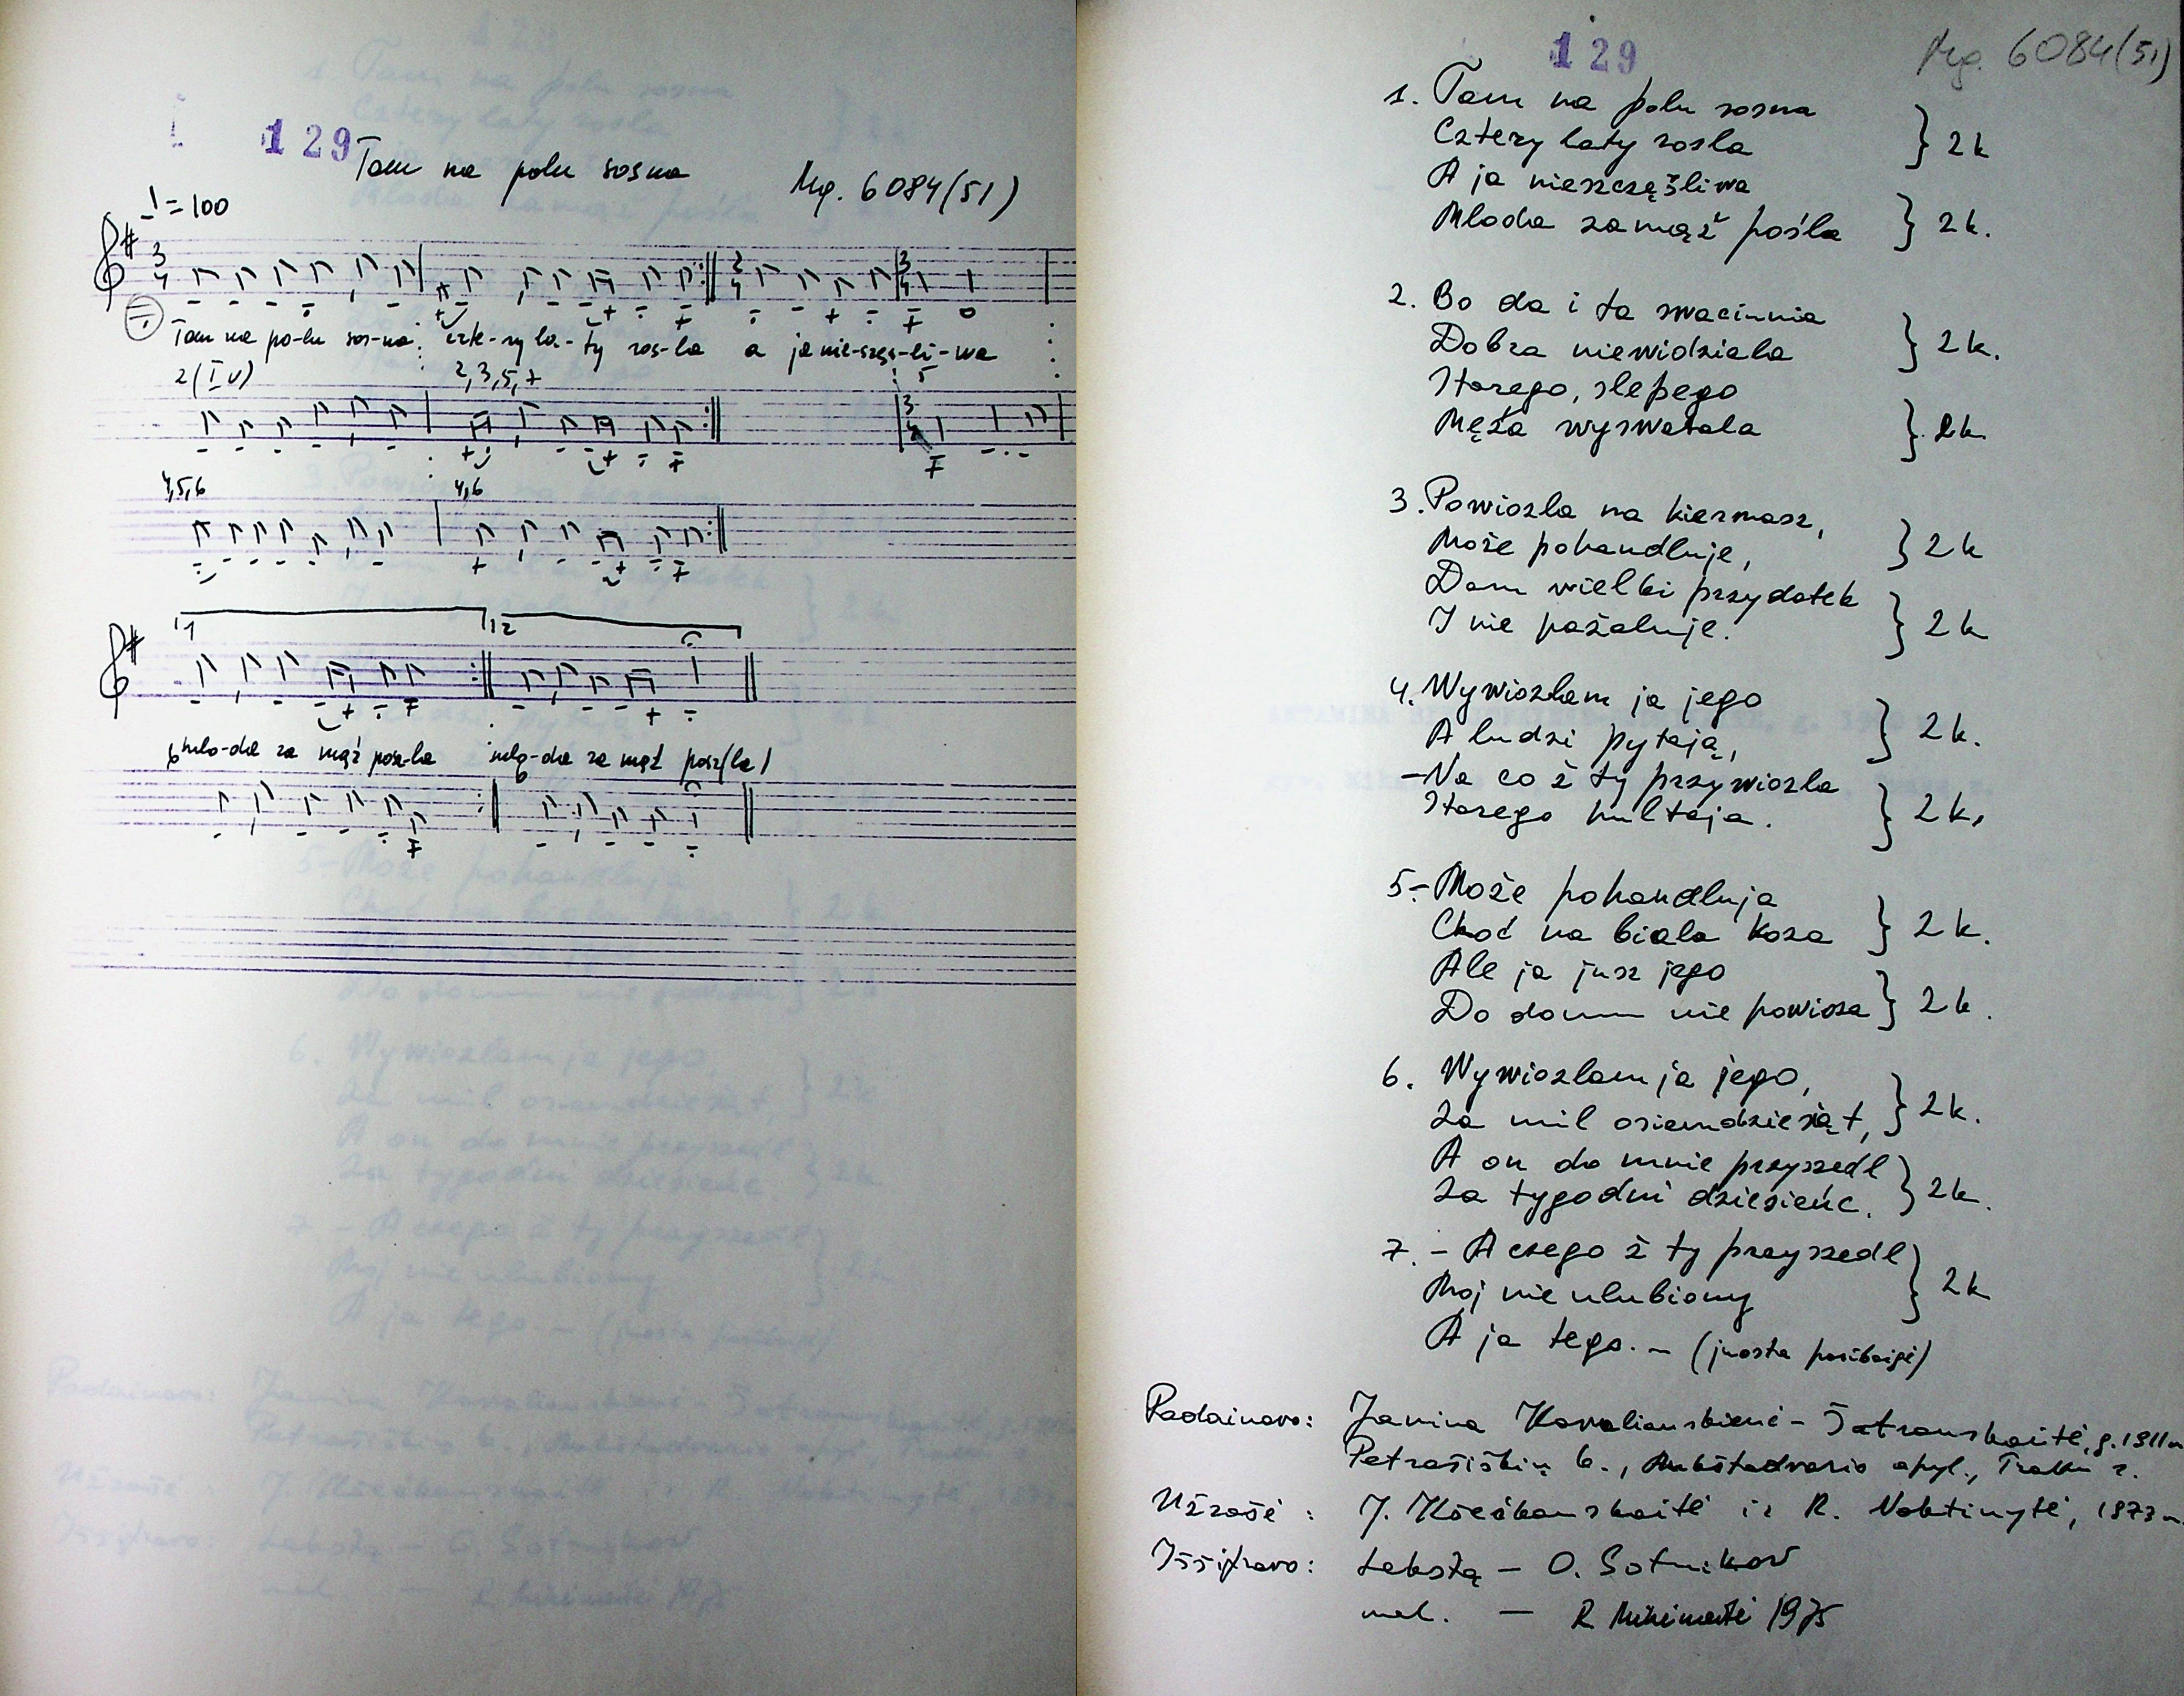 129
Tam na polu sosna
Mg. 6084(51)
♩=100
Tam na po-lu sos-na czte-ry la-ty ros-la a ja nie-szczęs-li-wa
2 (IV)
2,3,5,7
5
4,5,6
4,6
1
2
mlo-da za mąż posz-la mlo-da za mąż posz(la)
129
Mg. 6084(51)
1. Tam na polu sosna
Cztery laty rosla } 2k
A ja nieszczęšliwa
Mloda zamąż pośla } 2k.
2. Bo da i ta swacinnia
Dobra niewidziala } 2k.
Starego, slepego
Męža wyswatala } 2k
3. Powiozla na kiermasz,
Može pohandluje, } 2k
Dam wielki przydatek
I nie pažaluje. } 2k
4. Wywiozlam ja jego
A ludzi pytają, } 2k.
- Na co ž ty przywiozla
Starego hultaja. } 2k,
5. - Može pohandluja
Choć na biala koza } 2k.
Ale ja jusz jego
Do domu nie powioza } 2k.
6. Wywiozlam ja jego,
Za mil osiemdziesiąt, } 2k.
A on do mnie przyszedl
Za tygodni dziesieńc. } 2k.
7. - A czego ž ty przyszedl
Moj nie ulubiony } 2k
A ja tego. - (juosta pasibaigė)
Padainavo: Janina Kavaliauskienė - Šatrauskaitė, g. 1911 m
Petrašiškių k., Aukštadvario apyl., Trakų r.
Užrašė : J. Kočėkauskaitė ir R. Noktinytė, 1973 m.
Iššifravo: tekstą - O. Sotnikov
mel. - R 1975